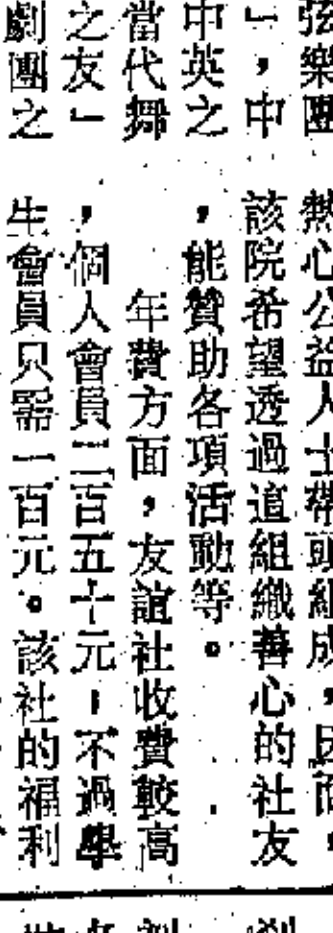 弦樂團
」，中
中英之
當代舞
之友」
劇團之
熱心公益人士帶頭組成，因而，
該院希望透過這組織善心的社友
，能贊助各項活動等。
年費方面，友誼社收費較高
，個人會員三百五十元，不過學
生會員只需一百元。該社的福利